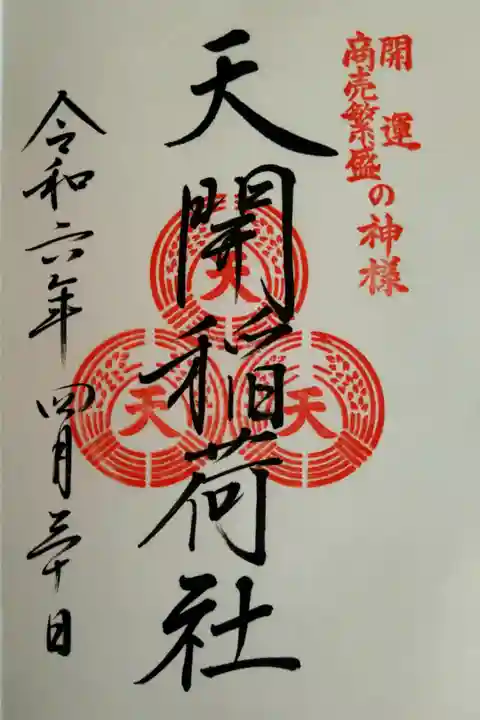 開運
商売繁盛の神様
天開稲荷社
天
天
天
令和六年四月三十日